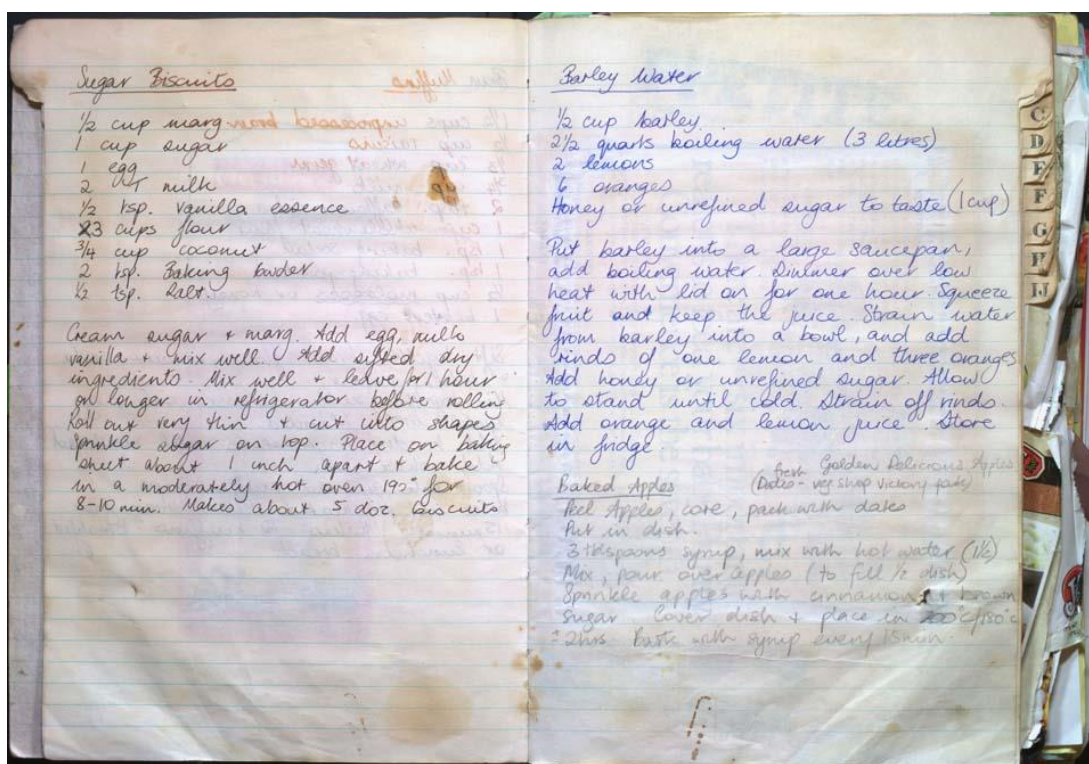 Sugar Biscuits
1/2 cup marg
1 cup sugar
1 egg
2 T milk
1/2 tsp. vanilla essence
3 cups flour
3/4 cup coconut
2 tsp. Baking powder
1/2 tsp. Salt.
Cream sugar + marg. Add egg, milk
vanilla + mix well. Add sifted dry
ingredients. Mix well + leave for 1 hour
or longer in refrigerator before rolling
Roll out very thin + cut into shapes
sprinkle sugar on top. Place on baking
sheet about 1 inch apart + bake
in a moderately hot oven 192° for
8-10 min. Makes about 5 doz. Biscuits
Barley Water
1/2 cup barley.
2 1/2 quarts boiling water (3 litres)
2 lemons
6 oranges
Honey or unrefined sugar to taste (1 cup)
Put barley into a large saucepan,
add boiling water. Simmer over low
heat with lid on for one hour. Squeeze
fruit and keep the juice. Strain water
from barley into a bowl, and add
rinds of one lemon and three oranges
Add honey or unrefined sugar. Allow
to stand until cold. Strain off rinds.
Add orange and lemon juice. Store
in fridge
fresh Golden Delicious Apples
Baked Apples (Dates - veg shop victory park)
Peel Apples, core, pack with dates
Put in dish.
3 tblspoons syrup, mix with hot water (1 1/2)
Mix, pour over apples (to fill 1/2 dish)
Sprinkle apples with cinnamon + brown
sugar Cover dish + place in 200°c/180°c
± 2hrs Baste with syrup every 15min.
C
D
E
F
G
H
IJ